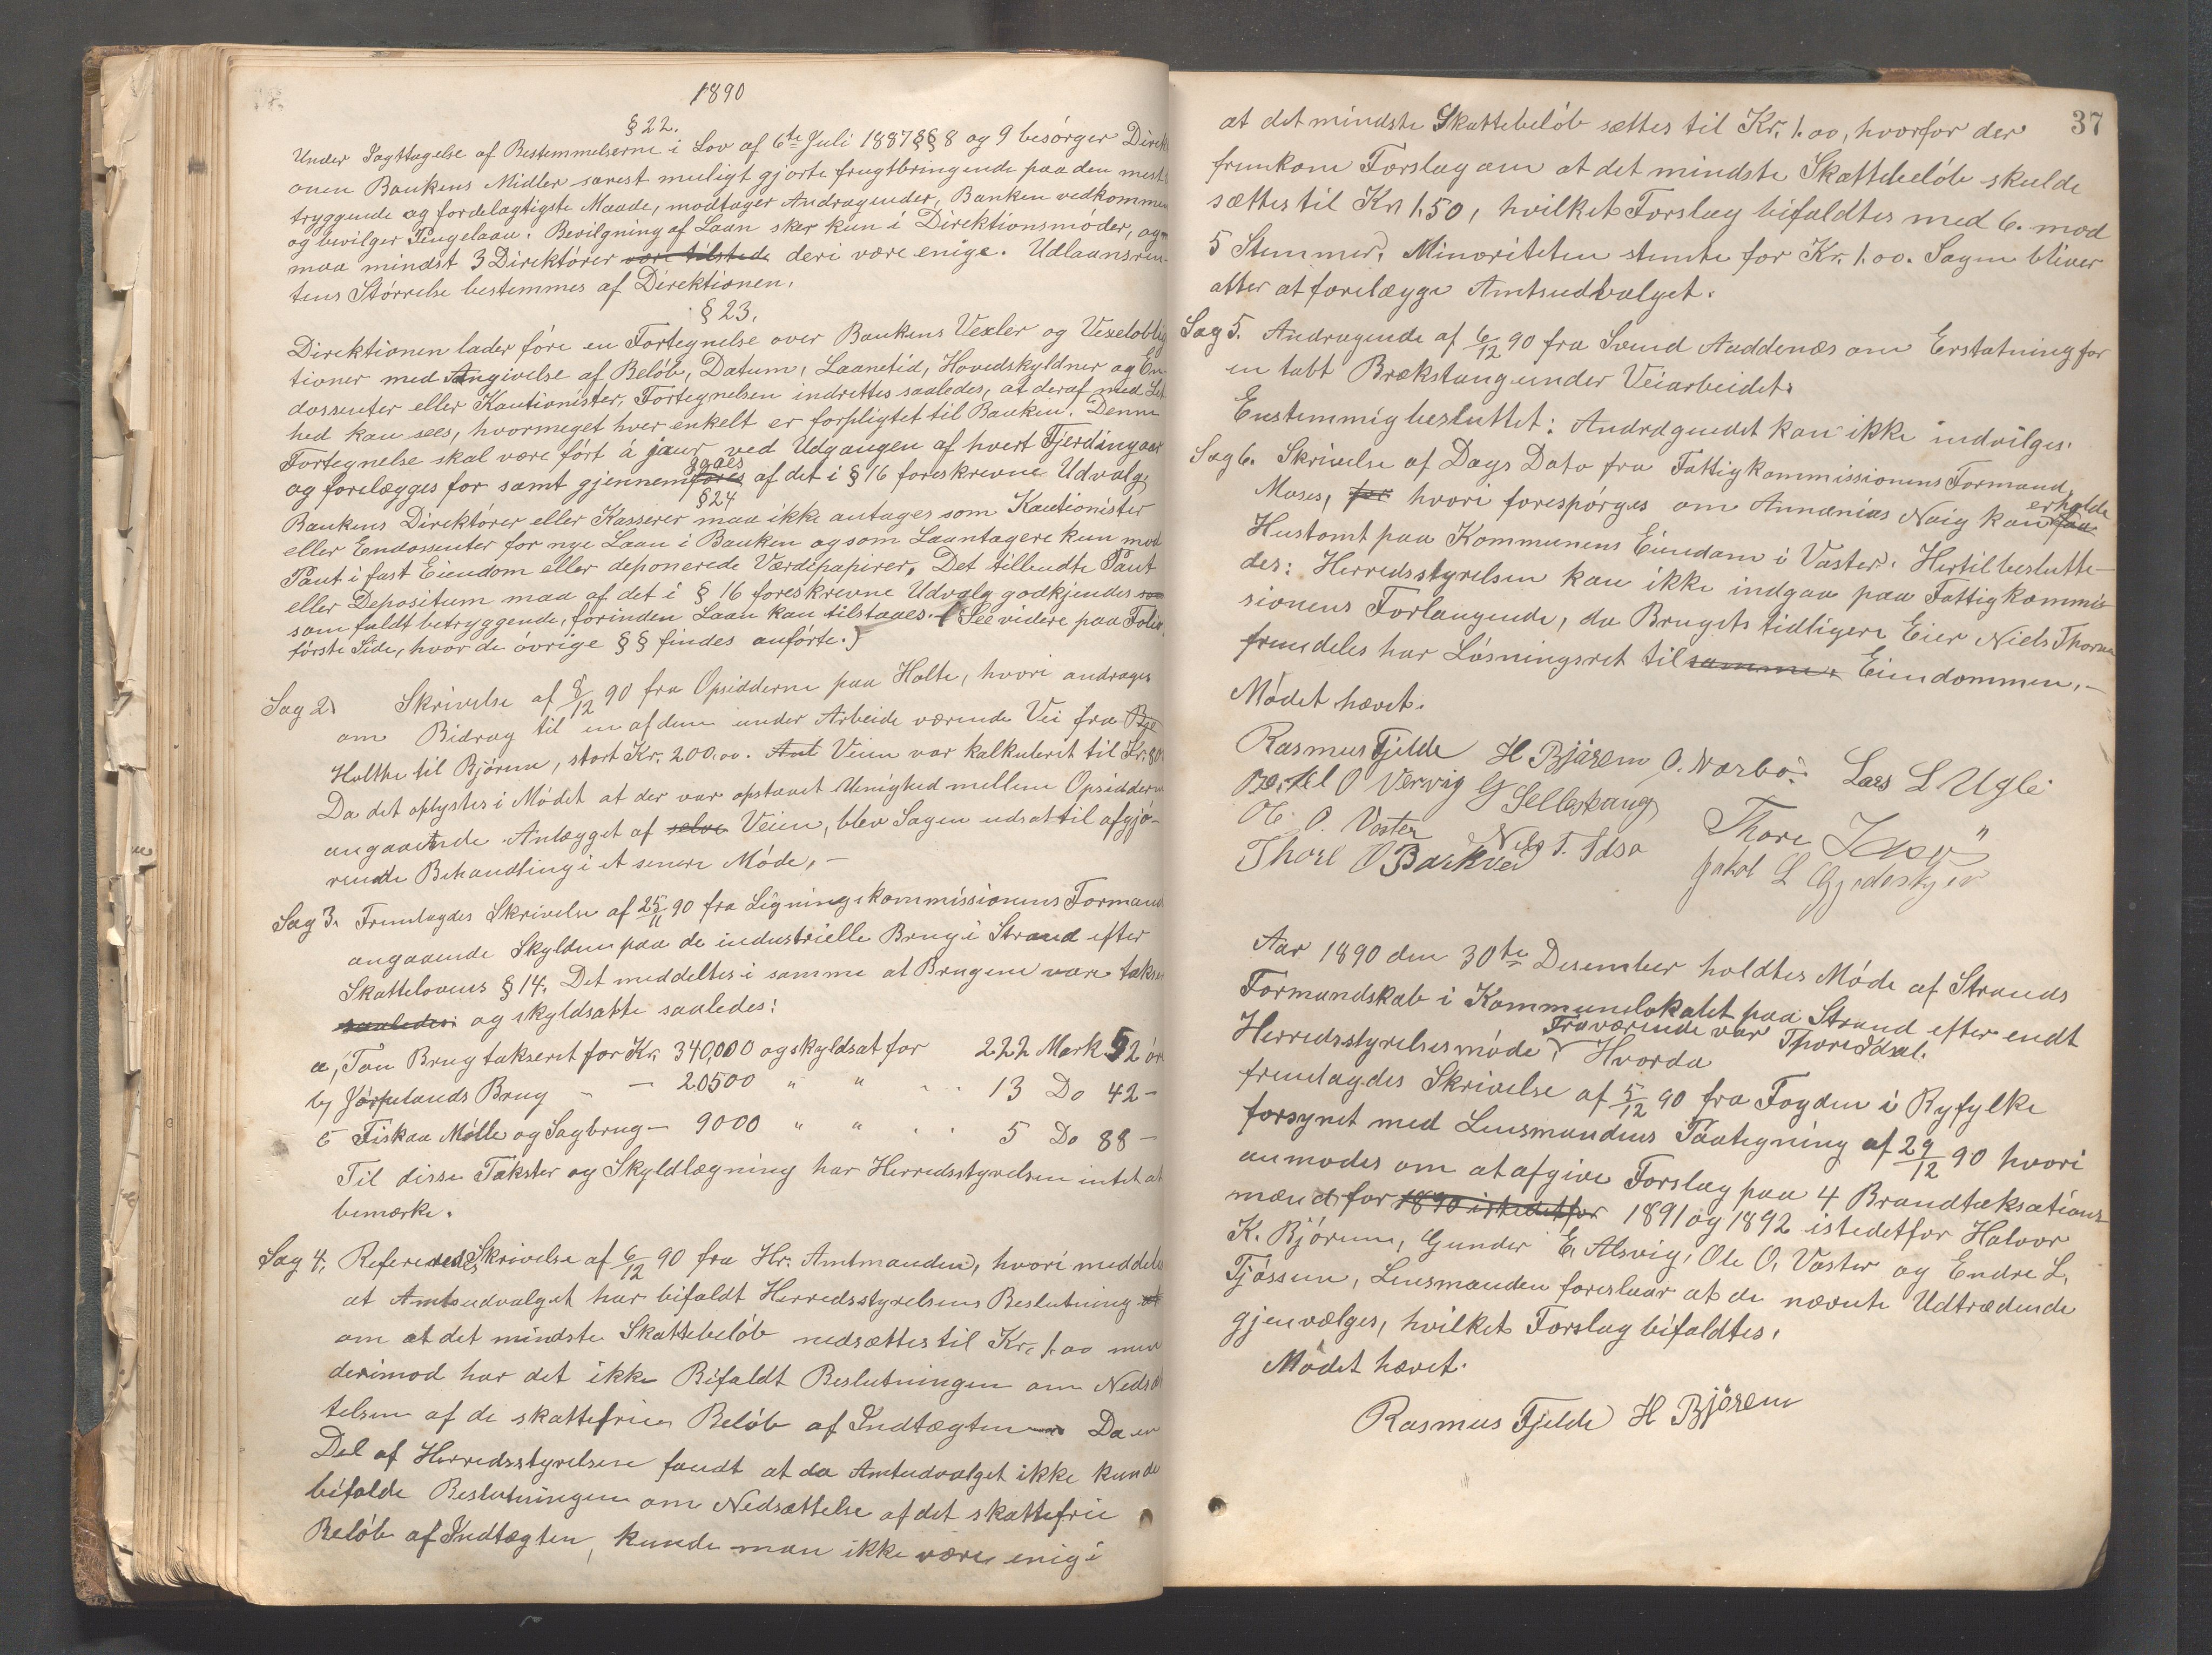 1890
§ 22.
Under Iagttagelse af Bestemmelserne i Lov af 6te Juli 1887 §§ 8 og 9 besørger Direkti
onen Bankens Midler snarest muligt gjorte frugtbringende paa den mest
tryggende og fordelagtigste Maade, modtager Andragender, Banken vedkommen
og bevilger Pengelaan. Bevilgning af Laan sker kun i Direktionsmøder, og
maa mindst 3 Direktører være tilstede deri være enige. Udlaansren-
tens Størrelse bestemmes af Direktionen.
§ 23.
Direktionen lader føre en Fortegnelse over Bankens Vexler og Vexelobliga
tioner med Angivelse af Beløb, Datum, Laanetid, Hovedskyldner og En-
dossenter eller Kautionister. Fortegnelsen indrettes saaledes, at deraf med Let
hed kan sees, hvormeget hver enkelt er forpligtet til Banken. Denne
Fortegnelse skal være ført á jour ved Udgangen af hvert Fjerdingaar
og forelægges for samt gjennemføres gaaes af det i § 16 foreskrevne Udvalg.
§ 24
Bankens Direktører eller Kasserer maa ikke antages som Kautionister
eller Endossenter for nye Laan i Banken og som Laantagere kun mod
Pant i fast Eiendom eller deponerede Værdipapirer. Det tilbudte Pant
eller Depositum maa af det i § 16 foreskrevne Udvalg godkjendes som
som fuldt betryggende, forinden Laan kan tilstaaes. (See videre paa Folio
første Side, hvor de øvrige §§ findes anførte.)
Sag 2. Skrivelse af 8/12 90 fra Opsidderne paa Holte, hvori andrages
om Bidrag til en af dem under Arbeide værende Vei fra
Holthe til Bjørum, stort Kr. 200.00. Veien var kalkuleret til Kr. 80
Da det oplystes i Mødet at der var opstaaet Uenighed mellem Opsidderne
angaaende Anlægget af selve Veien, blev Sagen udsat til afgjø-
rende Behandling i et senere Møde. –
Sag 3. Fremlagdes Skrivelse af 25/11 90 fra Ligningskommissionens Formand
angaaende Skylden paa de industrielle Brug i Strand efter
Skattelovens § 14. Det meddeltes i samme at Brugene vare takse
saaledes: og skyldsatte saaledes:
a, Tau Brug takseret for Kr. 340,000 og skyldsat for 222 Mark 52 ør
b, Jørpelands Brug – – 20500 " " " " 13 Do 42 –
c Fiskaa Mølle og Sagbrug – 9000 " " " " 5 Do 88 –
Til disse Takster og Skyldlægning har Herredsstyrelsen intet at
bemærke.
Sag 4. Refereredes Skrivelse af 6/12 90 fra Hr. Amtmanden, hvori meddeles
at Amtsudvalget har bifaldt Herredsstyrelsens Beslutning at
om at det mindste Skattebeløb nedsættes til Kr. 1.00 men
derimod har det ikke Bifaldt Beslutningen om Nedsæt
telsen af de skattefrie Beløb af Indtægten Da en
Del af Herredsstyrelsen fandt at da Amtudvalget ikke kunde
bifalde Beslutningen om Nedsættelse af det skattefrie
Beløb af Indtægten, kunde man ikke være enig i
37
at det mindste Skattebeløb sættes til Kr. 1.00, hvorfor der
fremkom Forslag om at det mindste Skattebeløb skulde
sættes til Kr 1.50, hvilket Forslag bifaldtes med 6. mod
5 Stemmer. Minoriteten stemte for Kr. 1.00. Sagen bliver
atter at forelægge Amtsudvalget.
Sag 5. Andragende af 6/12 90 fra Svend Auddenæs om Erstatning for
en tabt Brækstang under Veiarbeidet.
Enstemmig besluttet: Andragendet kan ikke indvilges.
Sag 6. Skrivelse af Dags Dato fra Fattigkommissionens Formand,
Moses, for hvori forespørges om Annanias Noig kan faa erholde
Hustomt paa Kommunens Eiendom i Vaster. Hertil beslutte-
des: Herredsstyrelsen kan ikke indgaa paa Fattigkommis-
sionens Forlangende, da Brugets tidligere Eier Niels Thorsen
fremdeles har Løsningsret til samme. Eiendommen. –
Mødet hævet.
Rasmus Fjelde H Bjørem O. Nærbø. Lars L Ugle
Bertel O Vervig G Sellerhaug
Ole O. Vaster Nels T. Idsø Thore
Thore O Barkved Jakob L Gjedeskjer
Aar 1890 den 30te Desember holdtes Møde af Strands
Formandskab i Kommunelokalet paa Strand efter endt
Herredsstyrelsesmøde. Fraværende var Thore Idsal. Hvorda
fremlagdes Skrivelse af 5/12 90 fra Fogden i Ryfylke
forsynet med Lensmandens Paategning af 29/12 90 hvori
anmodes om at afgive Forslag paa 4 Brandtaksations-
mænd for 1890 istedetfor 1891 og 1892 istedetfor Halvor
K. Bjørum, Gunder E. Alsvig, Ole O. Vaster og Endre L.
Tjøssem, Lensmanden foreslaar at de nævnte Udtrædende
gjenvælges, hvilket Forslag bifaldtes.
Mødet hævet.
Rasmus Fjelde H Bjørem